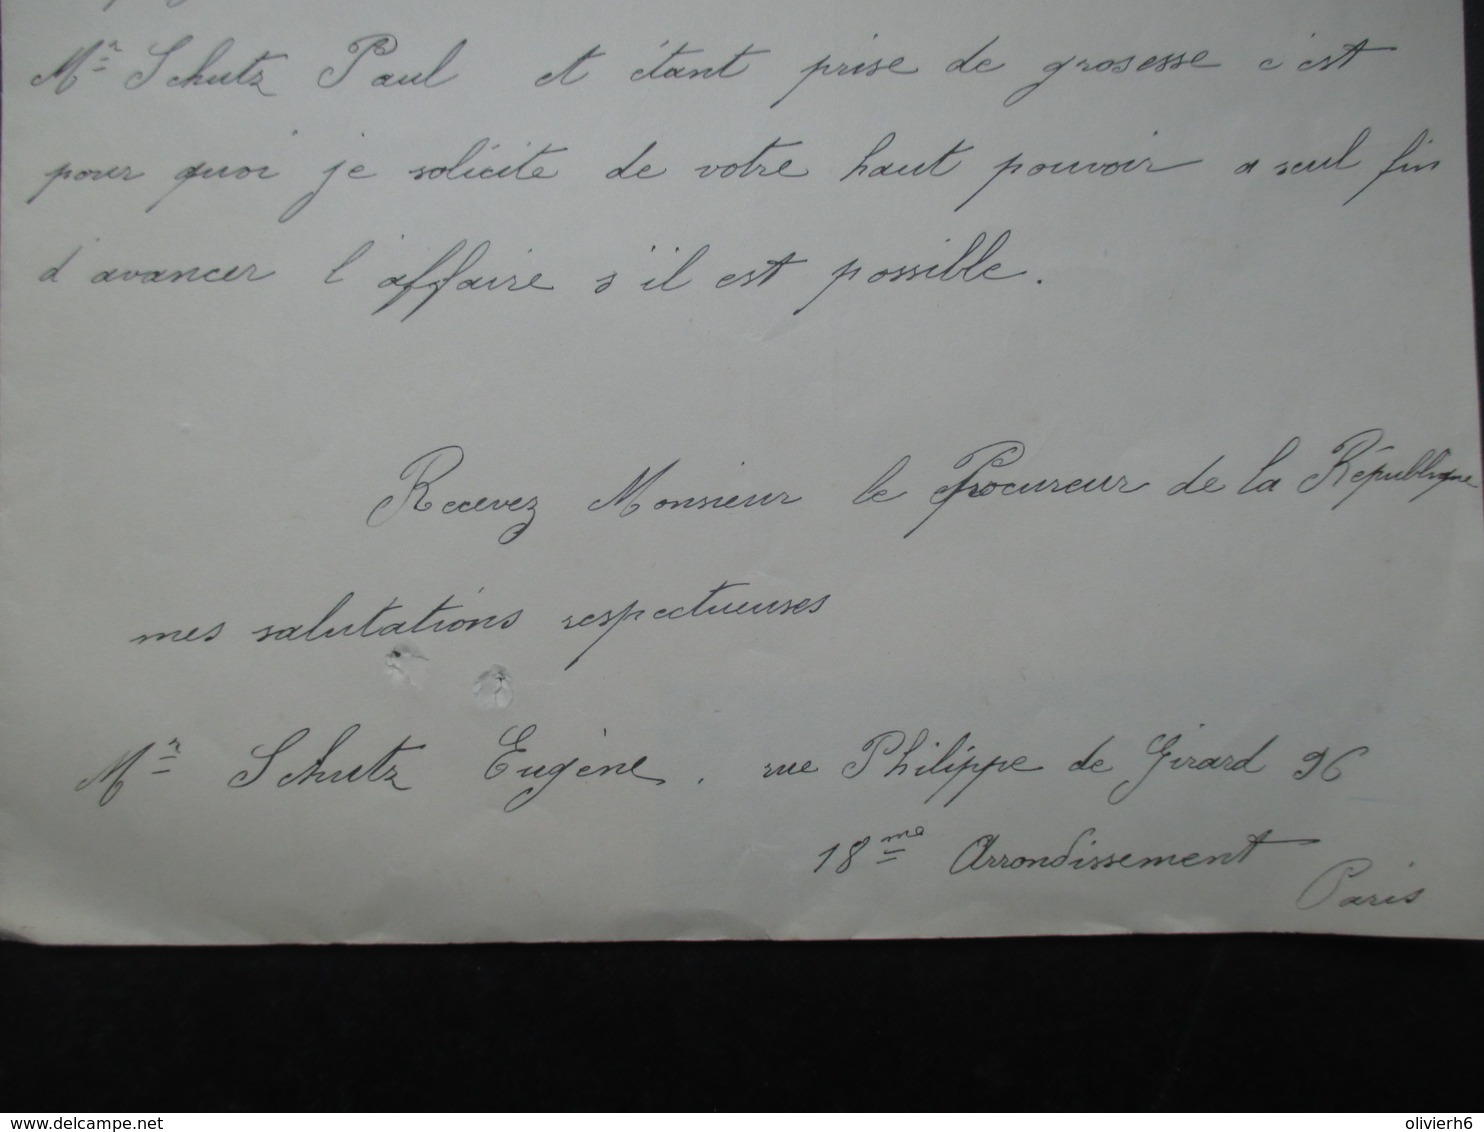 Mr Schutz Paul et étant prise de grosesse c'est
pour quoi je solicite de votre haut pouvoir a seul fin
d'avancer l'affaire s'il est possible.
Recevez Monsieur le Procureur de la République
mes salutations respectueuses
Mr Schutz Eugène. rue Philippe de Girard 96
18me Arrondissement
Paris
olivierh6